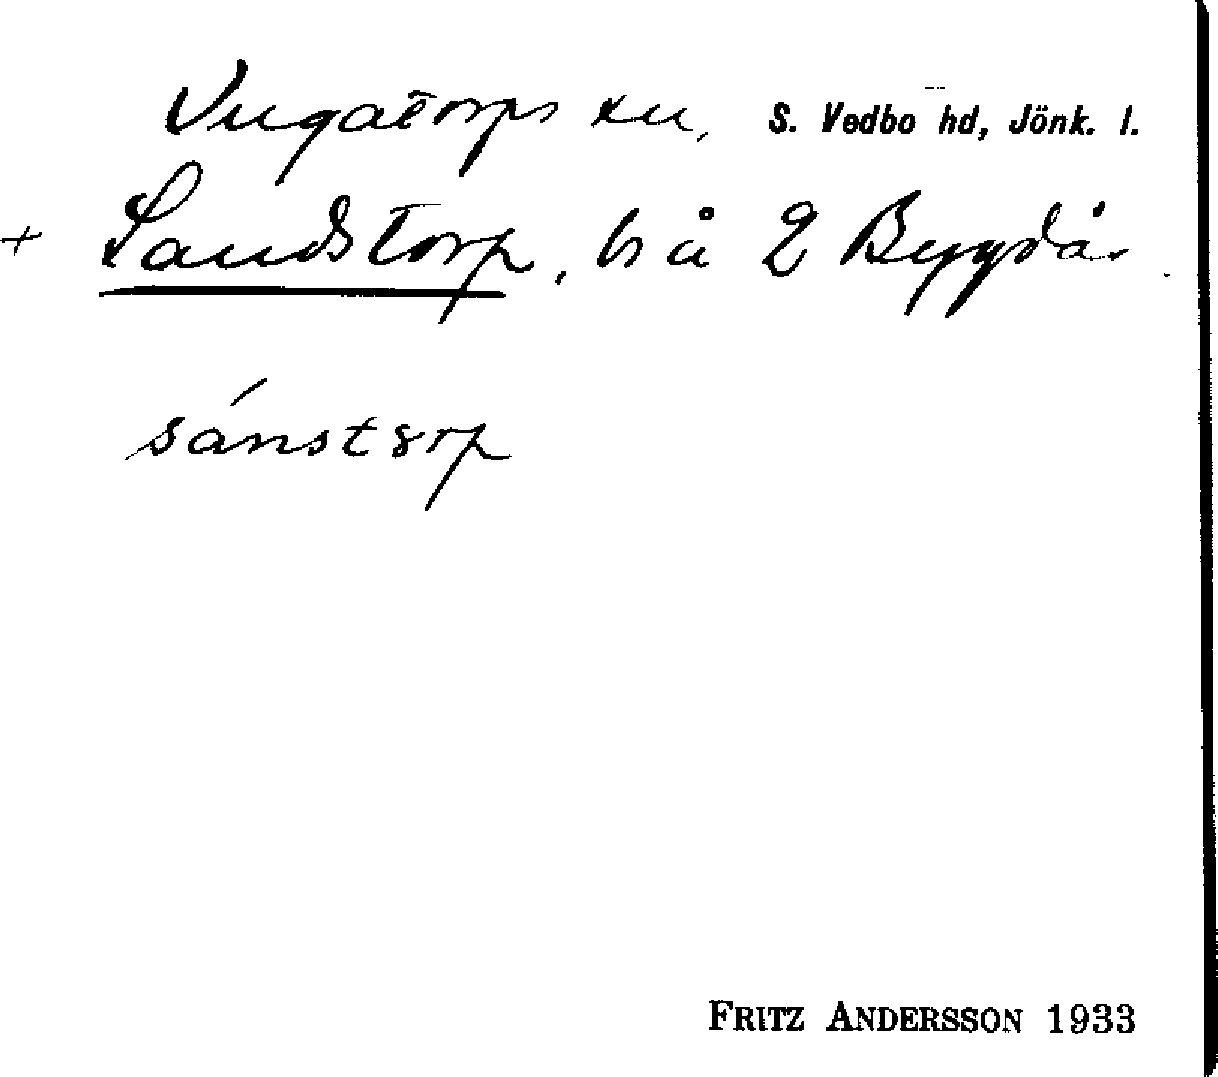 Vingatorps sn, S. Vedbo hd, Jönk. l.
+ Sandstorp, ls å 2 Bygdå.
sánstorp
FRITZ ANDERSSON 1933